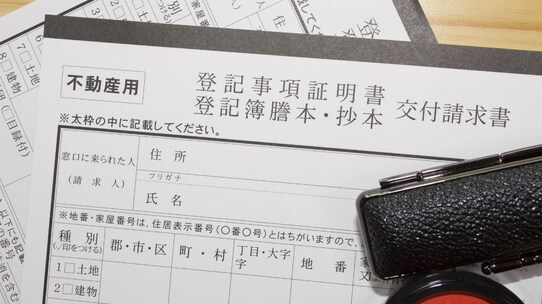 不動産用
登記事項証明書
登記簿謄本・抄本 交付請求書
※太枠の中に記載してください。
窓口に来られた人
(請求人)
住所
フリガナ
氏名
※地番・家屋番号は、住居表示番号(○番○号)とはちがいますので、
種別
(✓印をつける)
郡・市・区
町・村
丁目・大字
字
地番
1□土地
2□建物
種別
家屋番号
住
7□土地
8□建物